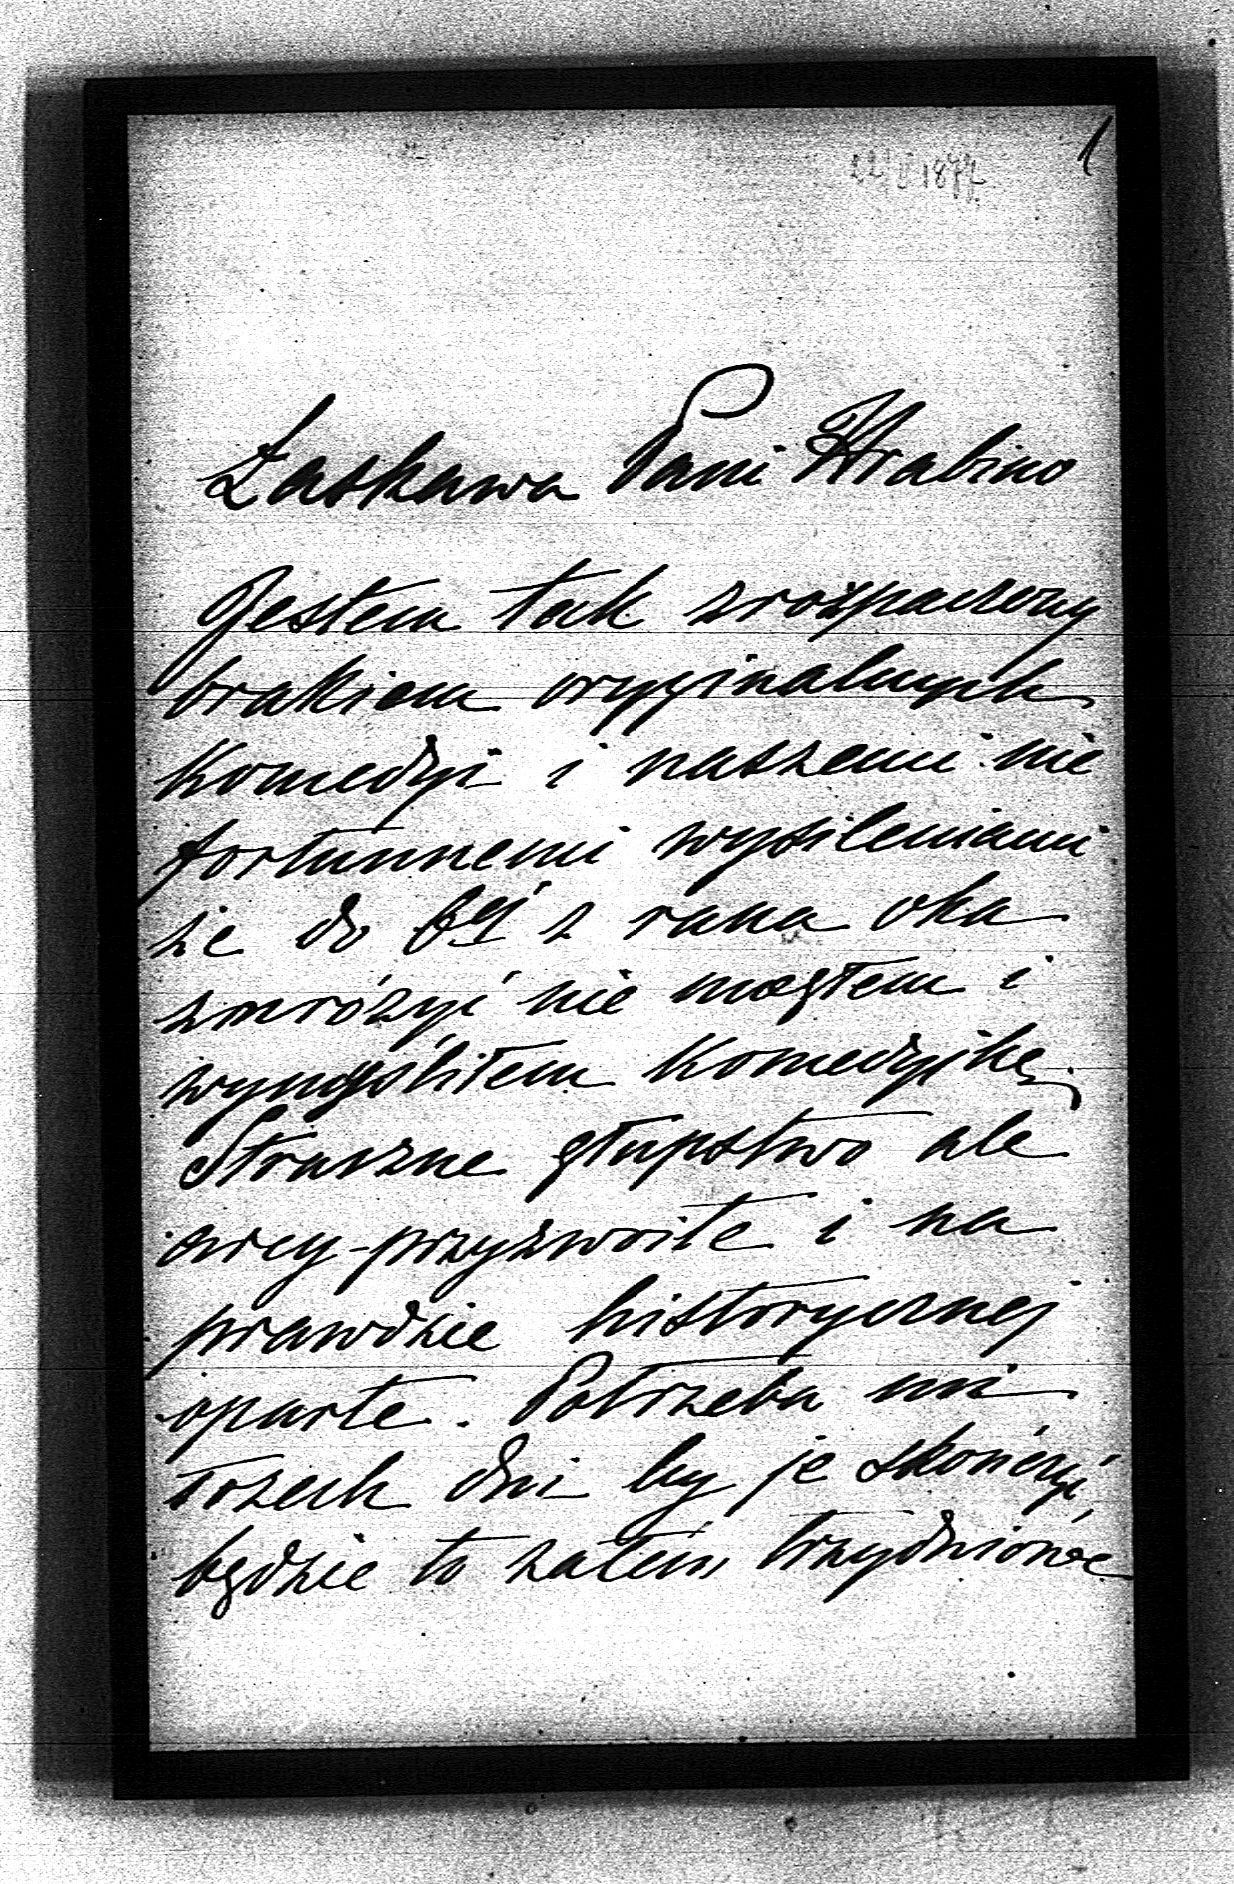 1
1877
Łaskawa Pani Hrabino
Jestem tak zrozpaczony
brakiem oryginalnych
Komedyi i naszemi nie
fortunnemi wysileniami
że do 6éj z rana oka
zmróżyć nie mogłem i
wymyśliłem Komedyjkę.
Straszne głupstwo ale
arcy-przyzwoite i na
prawdzie historycznej
oparte. Potrzeba mi
trzech dni by je skończyć,
będzie to zatem trzydniowe